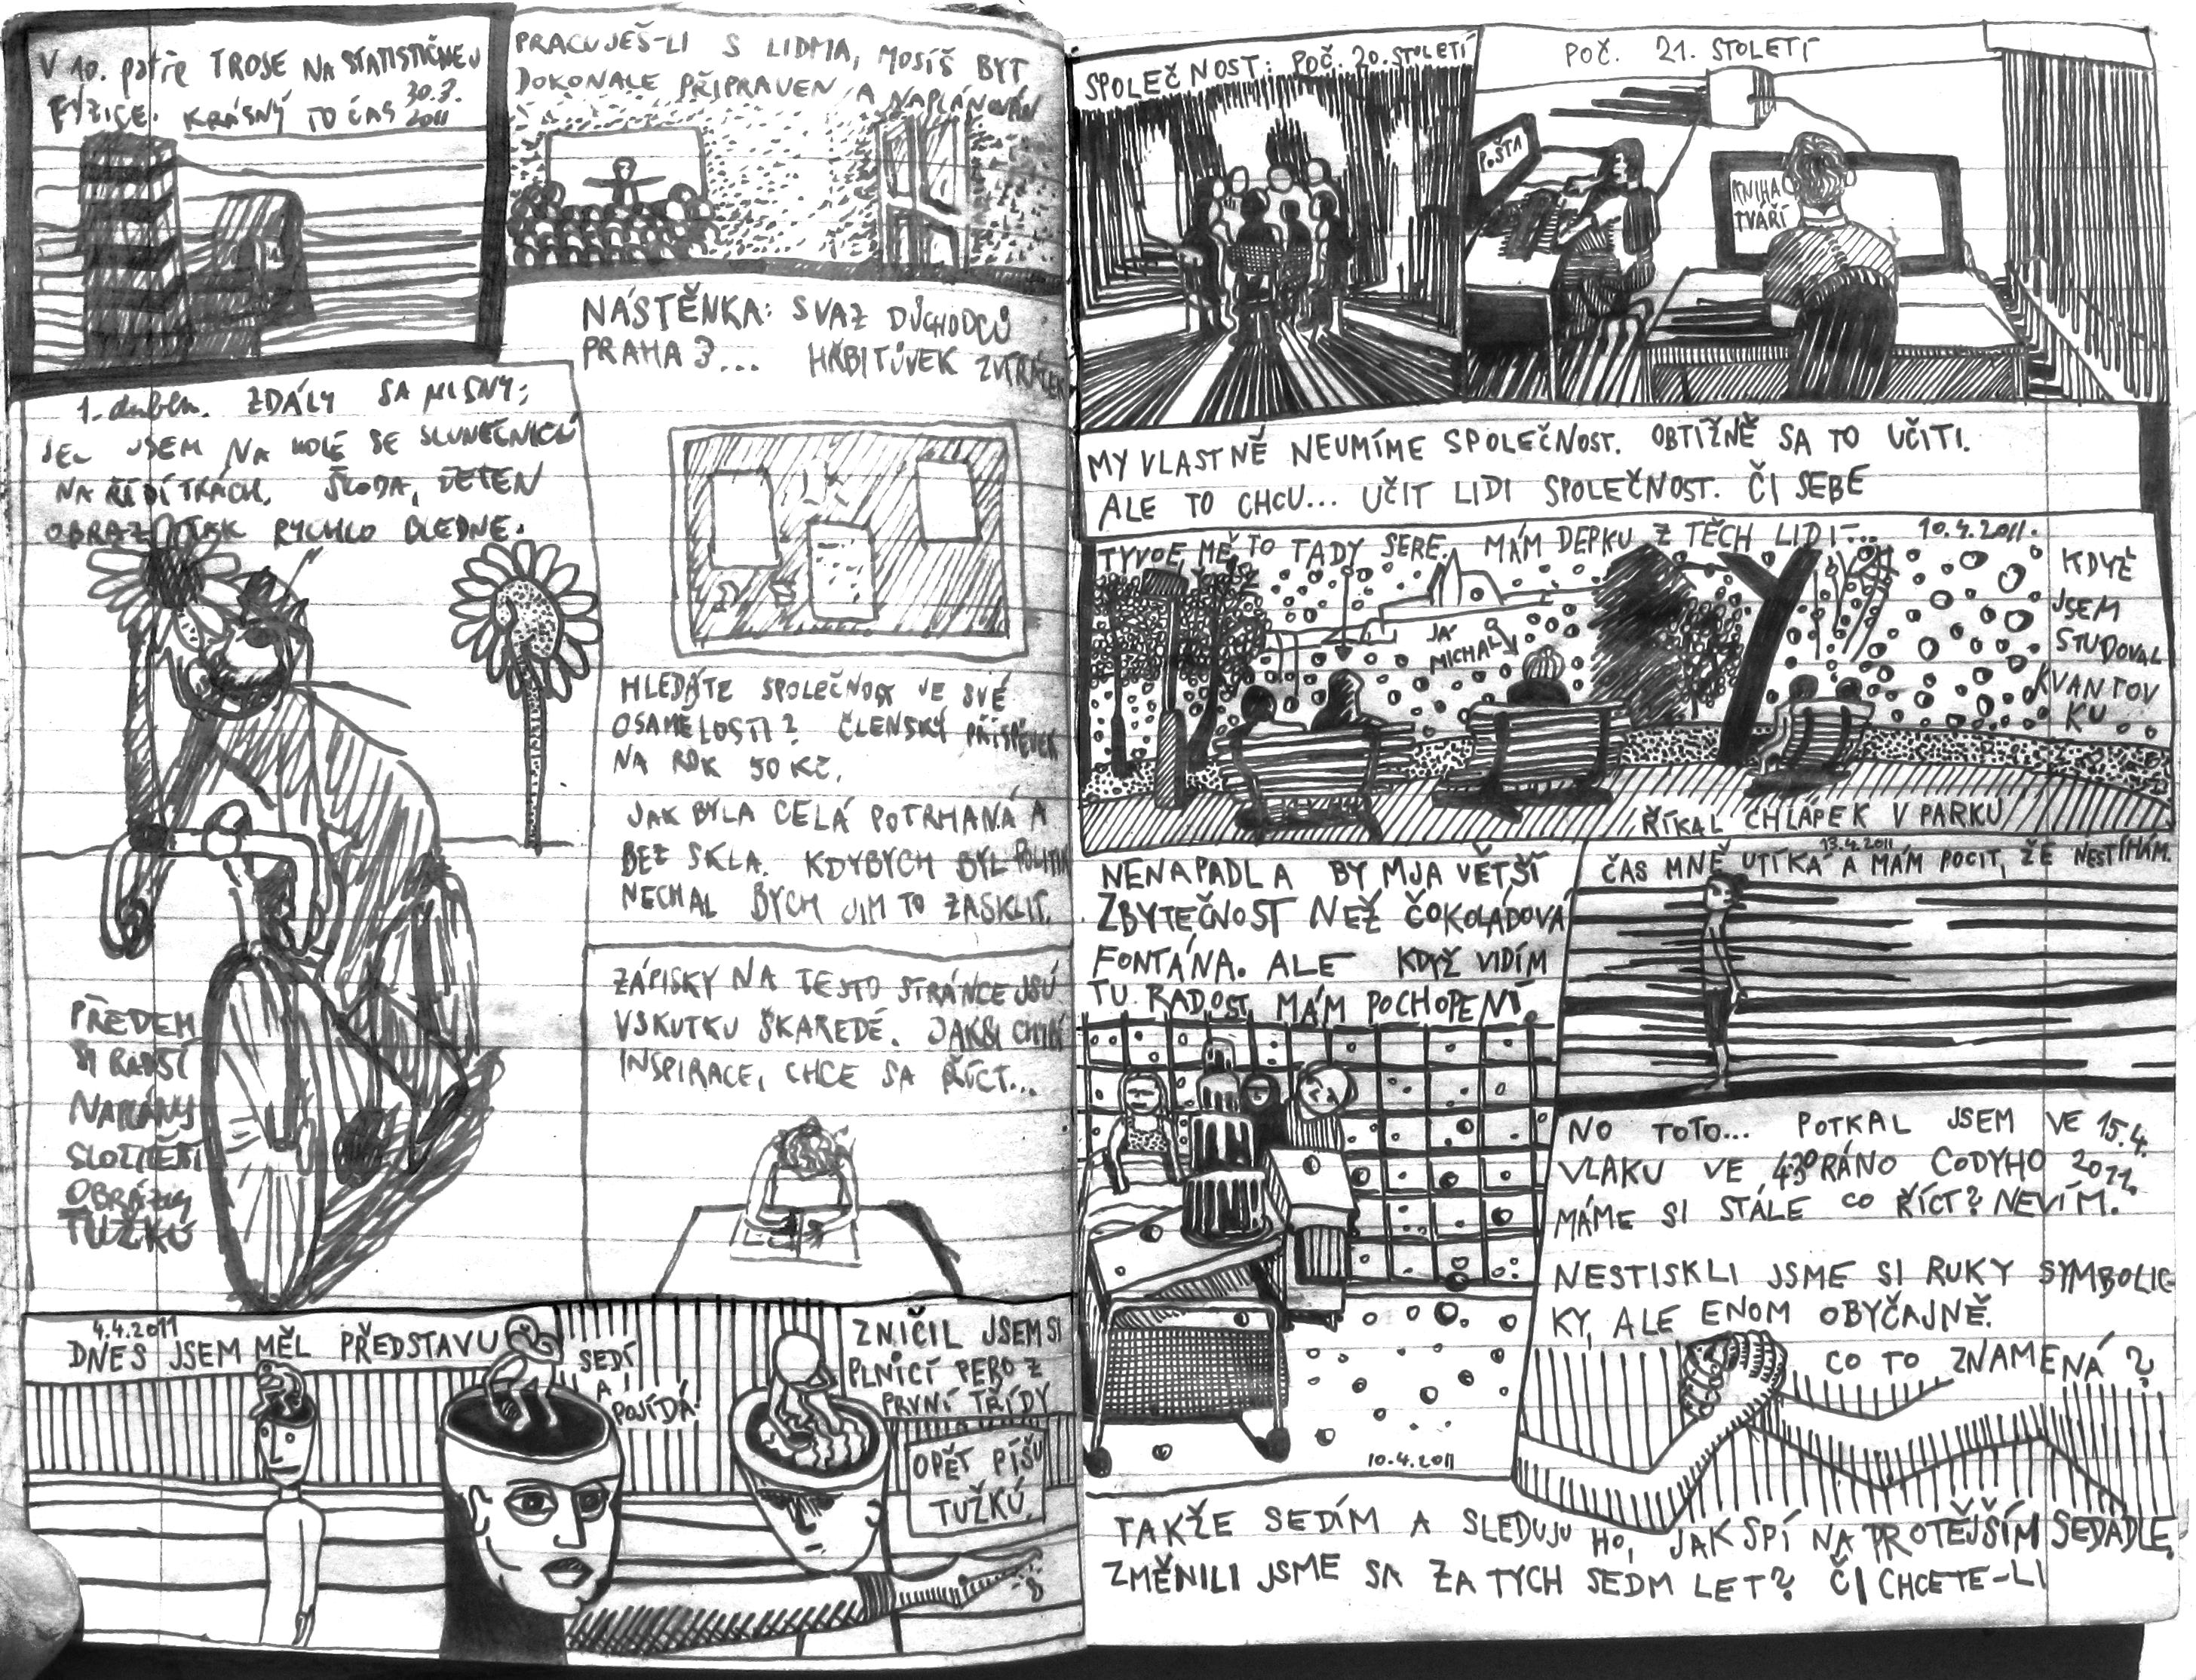 V 10. patře TROJE NA STATISTIČNEJ
FYZICE. KRÁSNÝ TO ČAS 30.3.
2011
PRACUJEŠ-LI S LIDMA, MOSÍŠ BYT
DOKONALE PŘIPRAVEN A NAPLÁNOVÁN
NÁSTĚNKA: SVAZ DŮCHODCŮ
PRAHA 3... HŘBITŮVEK ZVÍŘÁTEK
1. dubna. ZDÁLY SA
JEL JSEM NA KOLE SE SLUNEČNICÚ
NA ŘÍDÍTKÁCH. ŠKODA,
OBRAZ TAK RYCHLO BLEDNE.
PŘEDEM
SI RADŠI
NAPLÁNUJ
SLOŽITĚJŠÍ
OBRÁZKY
TUŽKÚ
HLEDÁTE SPOLEČNOST VE SVÉ
OSAMĚLOSTI? ČLENSKÝ PŘÍSPĚVEK
NA ROK 50 Kč.
JAK BYLA CELÁ POTRHANÁ A
BEZ SKLA. KDYBYCH BYL POLITIK
NECHAL BYCH JIM TO ZASKLIT.
ZÁPISKY NA TEJTO STRÁNCE JSÚ
VSKUTKU ŠKAREDÉ. JAKSI CHYBÍ
INSPIRACE, CHCE SA ŘÍCT...
4.4.2011
DNES JSEM MĚL PŘEDSTAVU
SEDÍ
A
POJÍDÁ
ZNIČIL JSEM SI
PLNICÍ PERO Z
PRVNÍ TŘÍDY
OPĚT PÍŠU
TUŽKÚ.
SPOLEČNOST: POČ. 20. STOLETÍ
POČ. 21. STOLETÍ
POŠTA
KNIHA
TVÁŘÍ
MY VLASTNĚ NEUMÍME SPOLEČNOST. OBTÍŽNĚ SA TO UČITI.
ALE TO CHCU... UČIT LIDI SPOLEČNOST. ČI SEBE
TYVOE, MĚ TO TADY SERE. MÁM DEPKU Z TĚCH LIDÍ... 10.4.2011.
KDYŽ
JSEM
STUDOVAL
KVANTOV
KU
JÁ
MICHAL
ŘÍKAL CHLÁPEK V PARKU
NENAPADLA BY MJA VĚTŠÍ
ZBYTEČNOST NEŽ ČOKOLÁDOVÁ
FONTÁNA. ALE KDYŽ VIDÍM
TU RADOST, MÁM POCHOPENÍ.
10.4.2011
13.4.2011
ČAS MNĚ UTÍKÁ A MÁM POCIT, ŽE NESTÍHÁM.
NO TOTO... POTKAL JSEM VE 15.4.
VLAKU VE 4:30 RÁNO CODYHO 2011
MÁME SI STÁLE CO ŘÍCT? NEVÍM.
NESTISKLI JSME SI RUKY SYMBOLIC
KY, ALE ENOM OBYČAJNĚ.
CO TO ZNAMENÁ?
TAKŽE SEDÍM A SLEDUJU HO, JAK SPÍ NA PROTĚJŠÍM SEDADLE.
ZMĚNILI JSME SA ZA TYCH SEDM LET? ČI CHCETE-LI